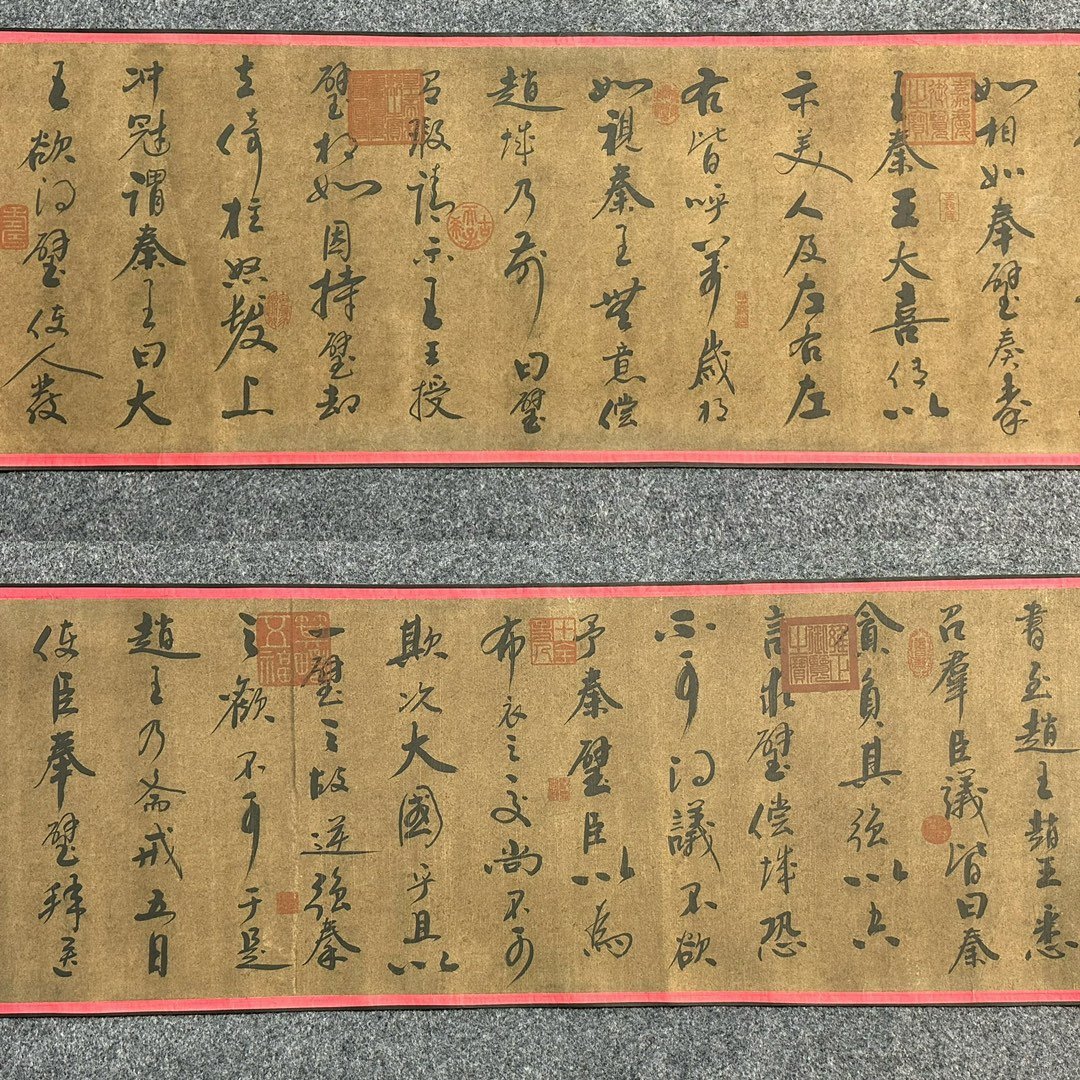 如相如奉璧奏秦
王秦王大喜傳以
示美人及左右左
右皆呼萬歲相
如視秦王無意償
趙城乃前曰璧
有瑕請示王王授
璧相如因持璧却
立倚柱怒髮上
冲冠謂秦王曰大
王欲得璧使人發
嘉慶御覽之寶
書至趙王趙王悉
召羣臣議皆曰秦
貪負其強以空
言求璧償城恐
不可得議不欲
予秦璧臣以為
布衣之交尚不可
欺況大國乎且以
一璧之故逆強秦
之歡不可于是
趙王乃齋戒五日
使臣奉璧拜送